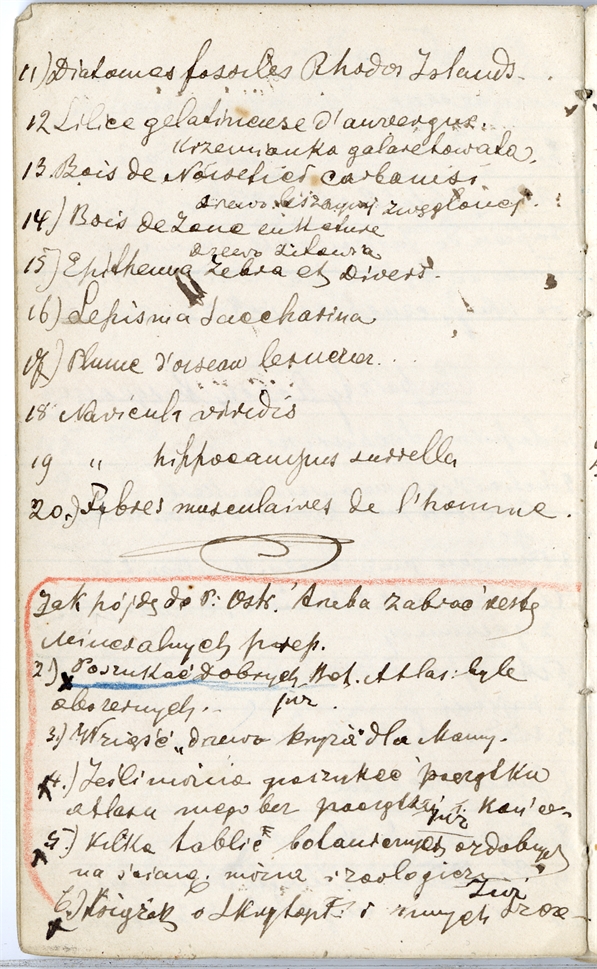 11) Diatomes fossiles Rhodos Islands.
12 Silice gelatineuse d'auvergne.
Krzemianka galaretowata.
13. Bois de Noisetier carbonisé
drewo zwęglonej
14) Bois de Zone en Nature
drzewo
15) Epithemia Zebra et Divers.
16) Lepisma Saccharina
17) Plume d'oiseau
18 Navicula viridis
19 " hippocampus
20.) Fybres musculaires de l'homme.
Jak pójdę do P. Ostr. Trzeba zabrać resztę
Mineralnych prep.
2) Poszukać dobrych Bot. Atlas: byle
obszernych. już.
3.) Wziąść „drewo krzyża" dla Mamy.
4.) Jeśli można poszukać początku
atlasu mego bez początku i
już
5.) Kilka tablic botanicznych ozdobnych
na ścianę. można i zoologicz.
Już
6.) Książek o Skrytopł. i innych